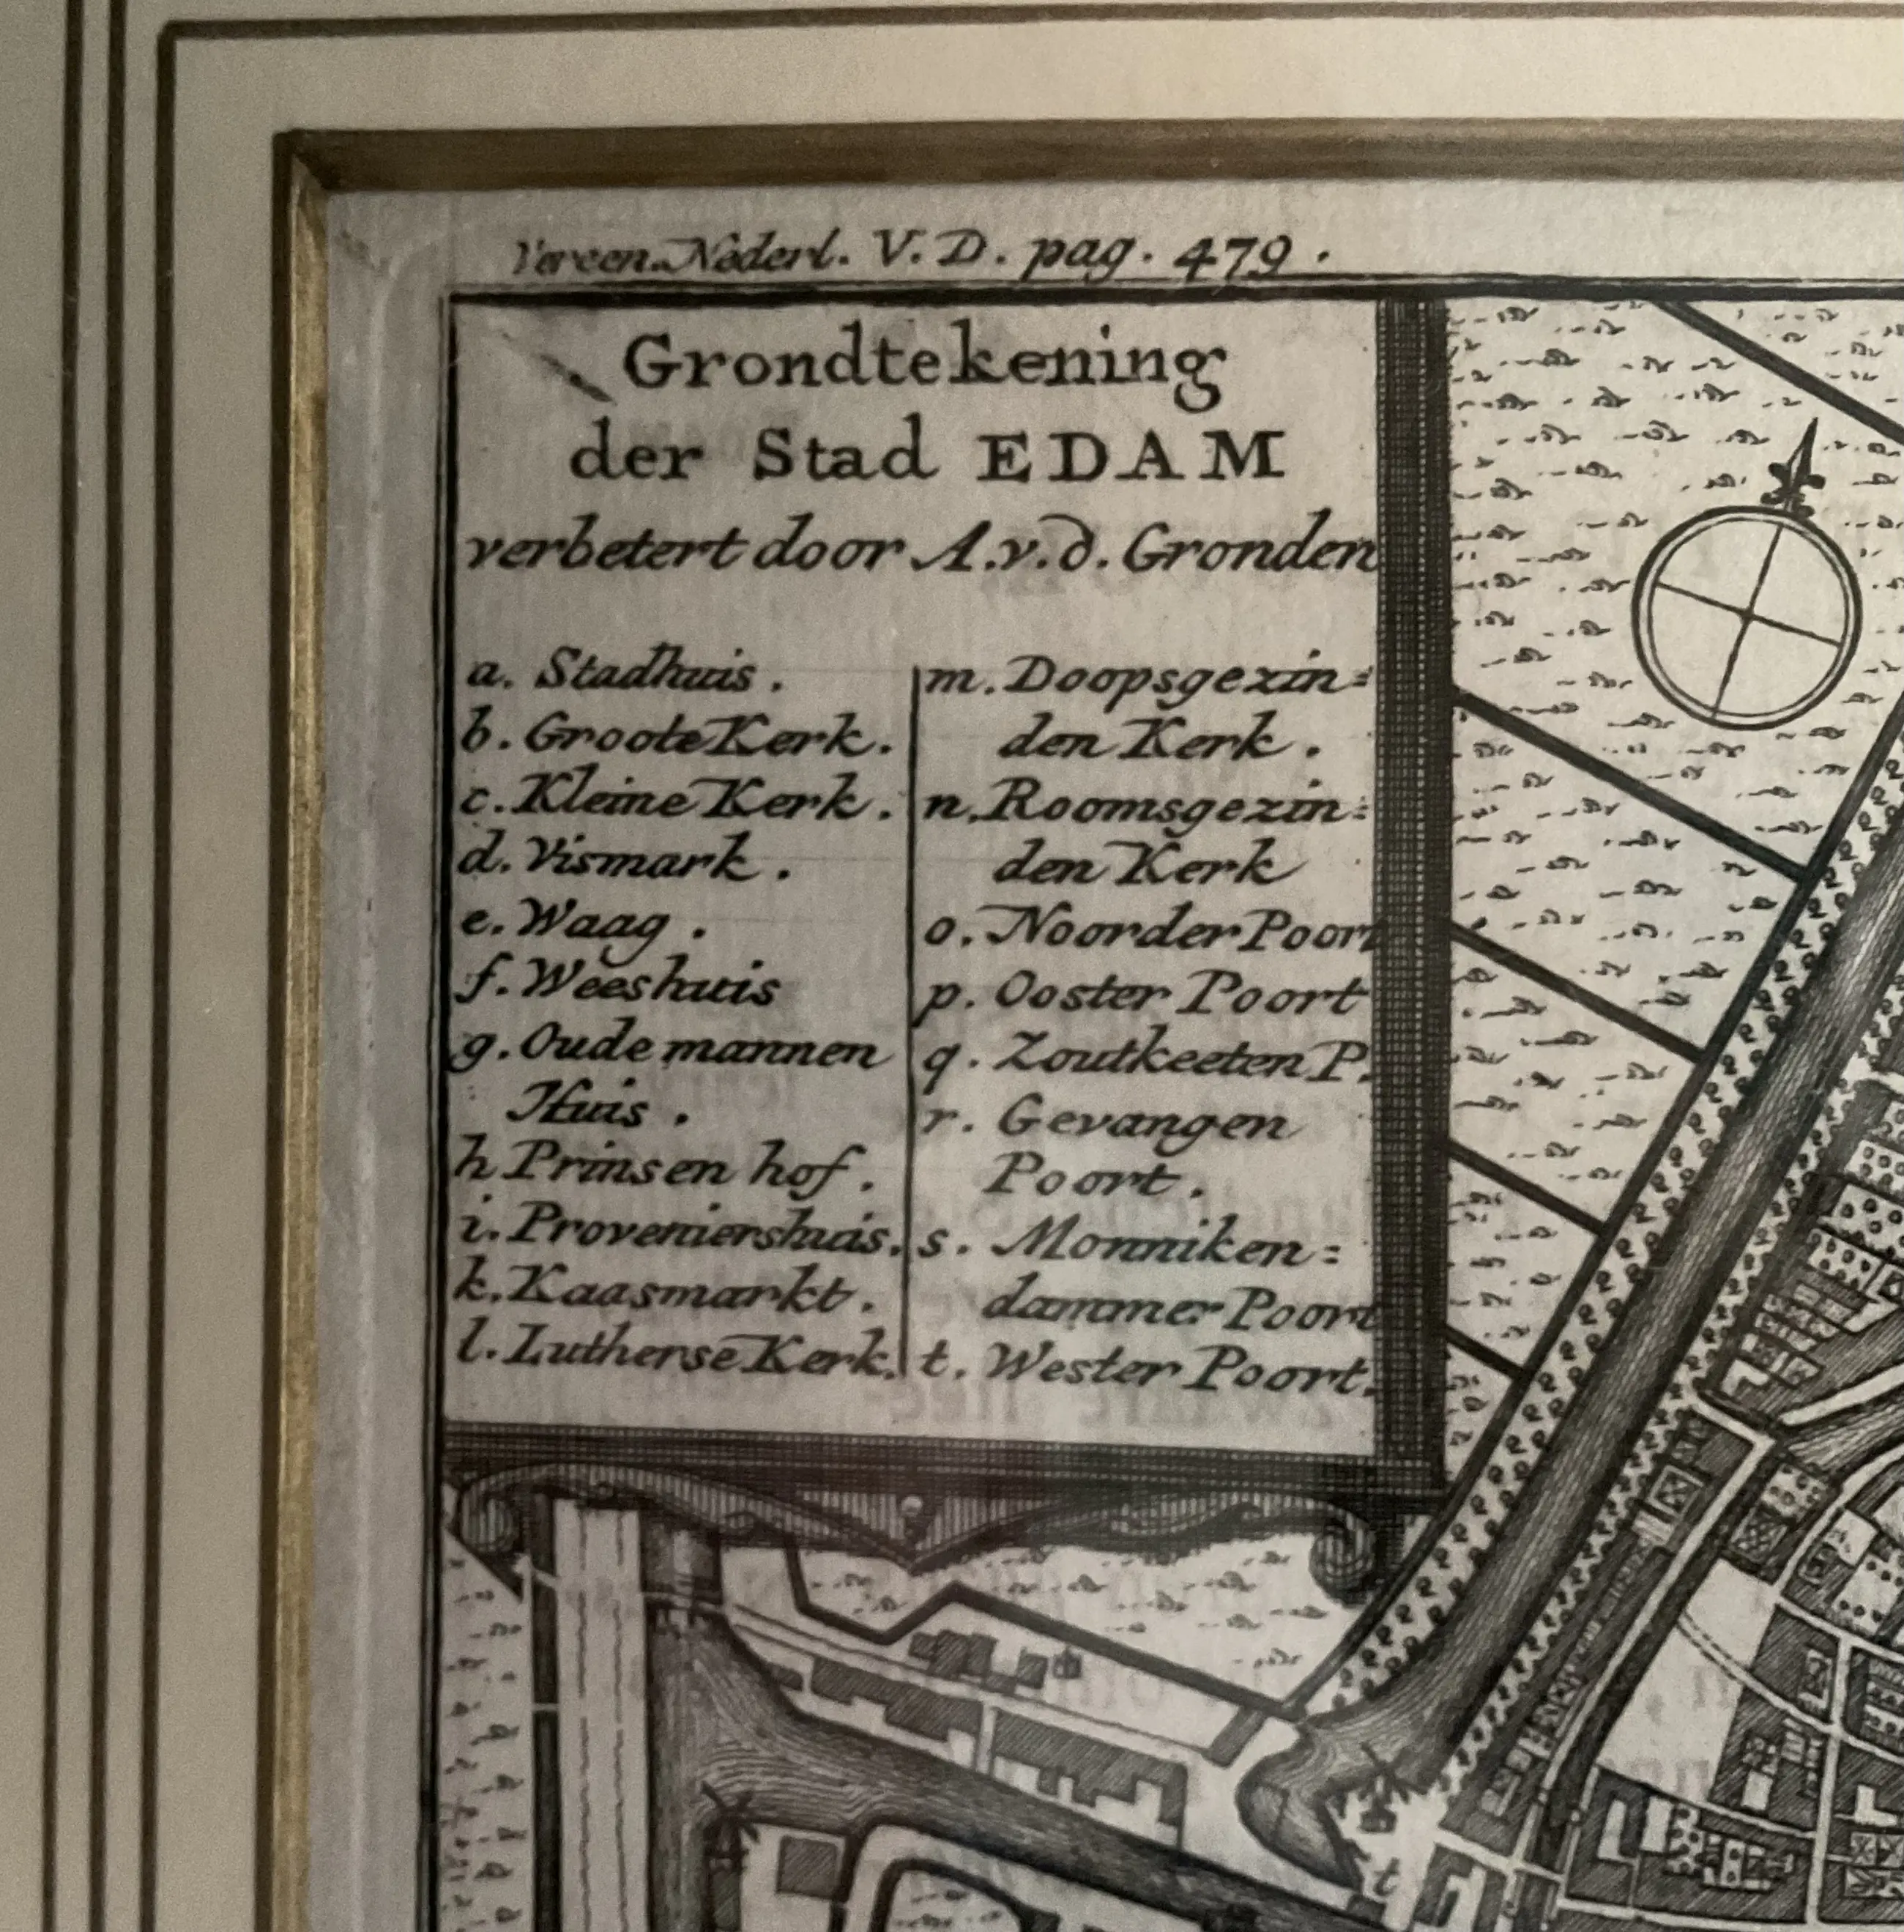 Vereen. Nederl. V. D. pag. 479.
Grondtekening
der Stad EDAM
verbetert door A.v.d. Gronden
a. Stadhuis.
b. Groote Kerk.
c. Kleine Kerk.
d. Vismark.
e. Waag.
f. Weeshuis
g. Oude mannen
Huis.
h Prinsen hof.
i. Proveniershuis.
k. Kaasmarkt.
l. Lutherse Kerk.
m. Doopsgezin=
den Kerk.
n. Roomsgezin=
den Kerk
o. Noorder Poort
p. Ooster Poort
q. Zoutkeeten P.
r. Gevangen
Poort.
s. Monniken=
dammer Poort
t. Wester Poort.
t